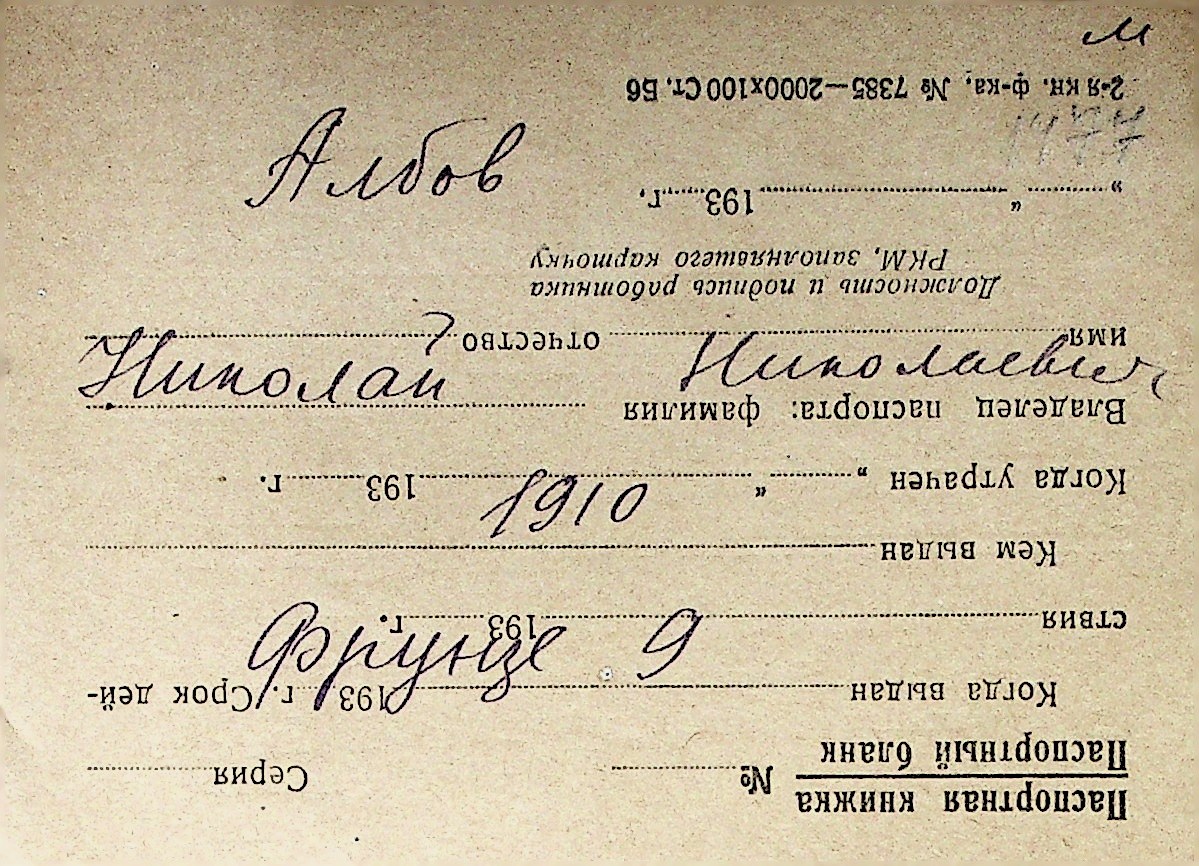 м
Албов
Николай Николаевич
1910
Фрунзе 9
Паспортная книжка
Паспортный бланк № Серия
Когда выдан 193 г. Срок дей-
ствия 193 г.
Кем выдан
Когда утрачен „ “ 193 г.
Владелец паспорта: фамилия
имя отчество
Должность и подпись работника
РКМ, заполнявшего карточку
„ “ 193 г.
2-я кн. ф-ка, № 7385—2000х100 Ст. Б6